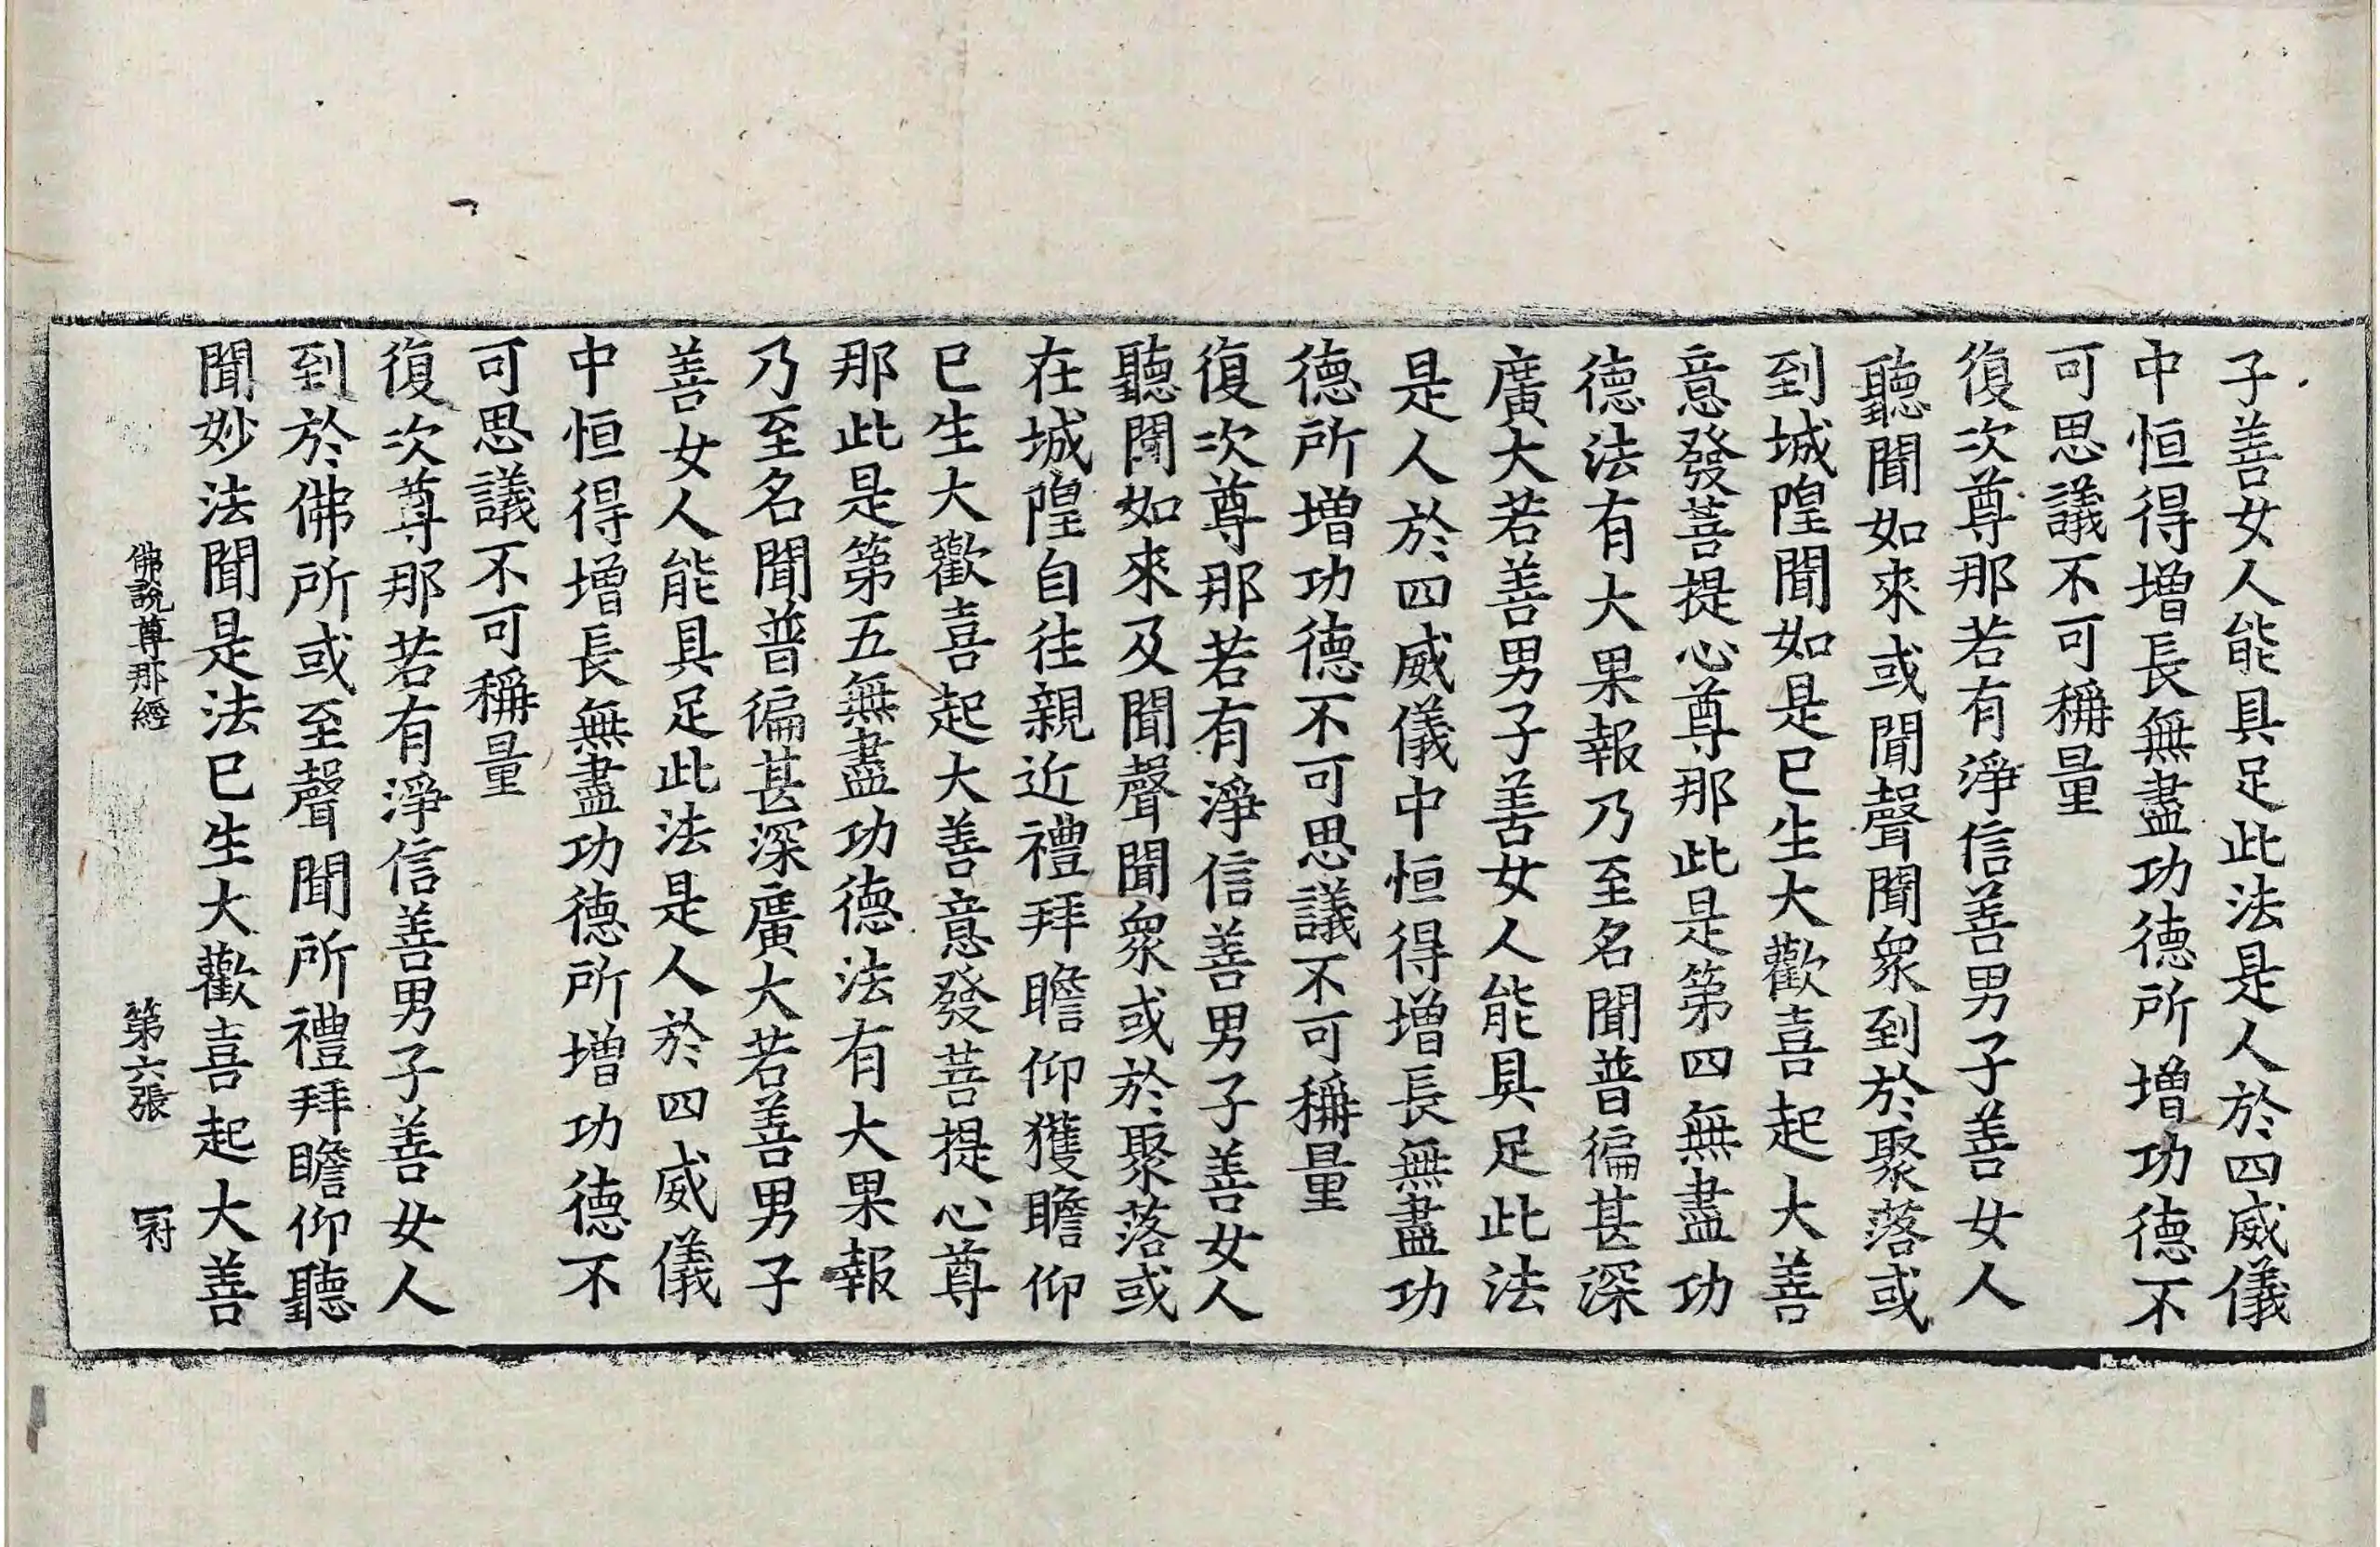 子善女人能具足此法是人於四威儀
中恒得增長無盡功德所增功德不
可思議不可稱量
復次尊那若有淨信善男子善女人
聽聞如來或聞聲聞衆到於聚落或
到城隍聞如是已生大歡喜起大善
意發菩提心尊那此是第四無盡功
德法有大果報乃至名聞普徧甚深
廣大若善男子善女人能具足此法
是人於四威儀中恒得增長無盡功
德所增功德不可思議不可稱量
復次尊那若有淨信善男子善女人
聽聞如來及聞聲聞衆或於聚落或
在城隍自往親近禮拜瞻仰獲瞻仰
已生大歡喜起大善意發菩提心尊
那此是第五無盡功德法有大果報
乃至名聞普徧甚深廣大若善男子
善女人能具足此法是人於四威儀
中恒得增長無盡功德所增功德不
可思議不可稱量
復次尊那若有淨信善男子善女人
到於佛所或至聲聞所禮拜瞻仰聽
聞妙法聞是法已生大歡喜起大善
佛說尊那經 第六張